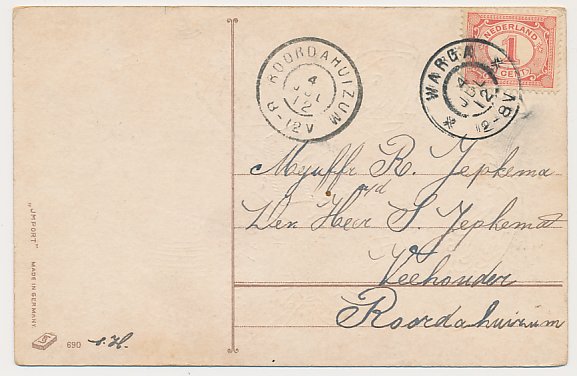 NEDERLAND
1
CENT
WARGA
4
JUL
12
12-8V
ROORDAHUIZUM
4
JUL
12
8-12V
Mejuffr R. Jepkema
a/d
Den Heer S. Jepkema
Veehouder
Roordahuizum
"IMPORT" MADE IN GERMANY.
690
s.H.